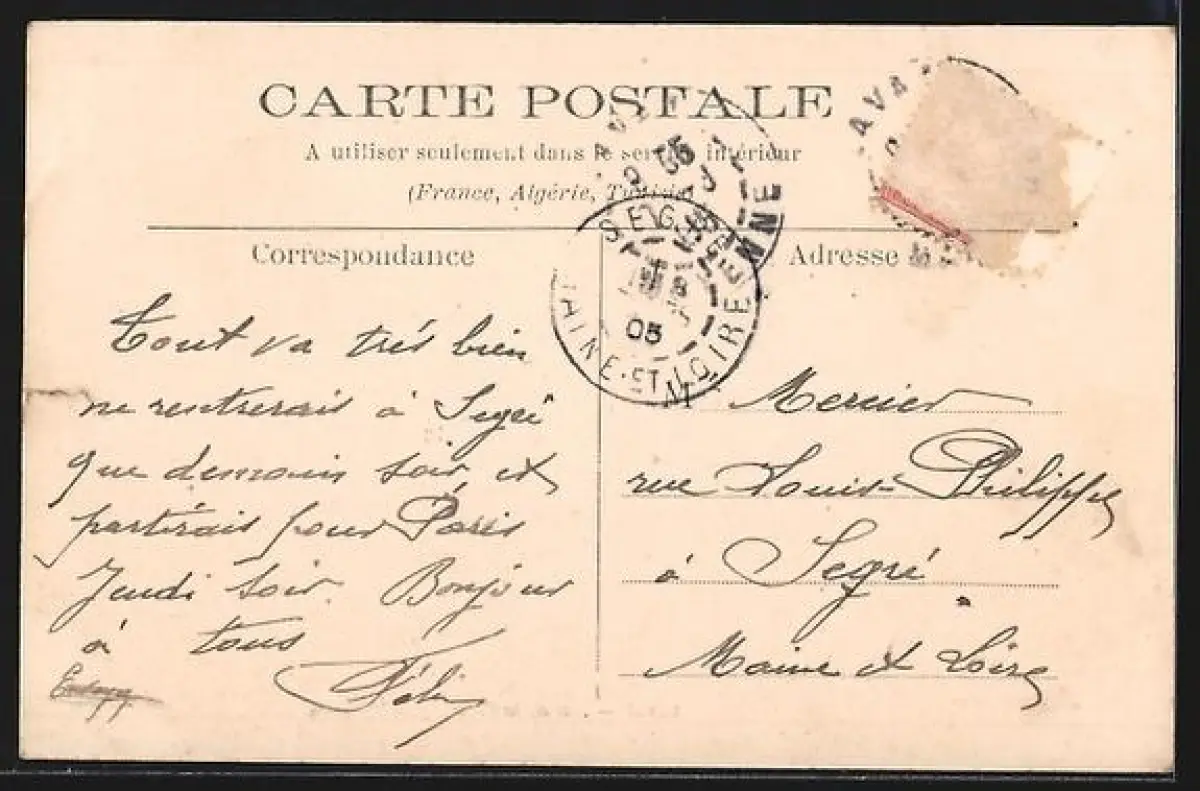 CARTE POSTALE
A utiliser seulement dans le service intérieur
(France, Algérie, Tunisie)
Correspondance
Adresse
SEGRÉ
05
MAINE-ET-LOIRE
AVA
NNE
Tout va très bien
ne rentrerais à Segré
que demain soir et
partirais pour Paris
Jeudi soir. Bonjour
à tous
Féli
M Mercier
rue Louis Philippe
à Segré
Maine et Loire